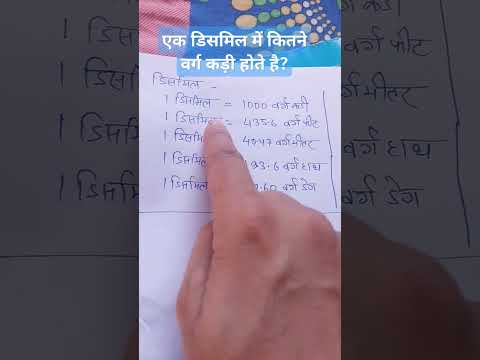 एक डिसमिल में कितने
वर्ग कड़ी होते है?
डिसमिल -
1 डिसमिल = 1000 वर्ग कड़ी
1 डिसमिल = 435.6 वर्ग फीट
1 डिसमिल 40.47 वर्ग मीटर
1 डिसमिल 193.6 वर्ग हाथ
1 डिसमिल .60 वर्ग डेग
वर्ग कड़ी
वर्ग फीट
वर्ग मीटर
वर्ग हाथ
वर्ग डेग